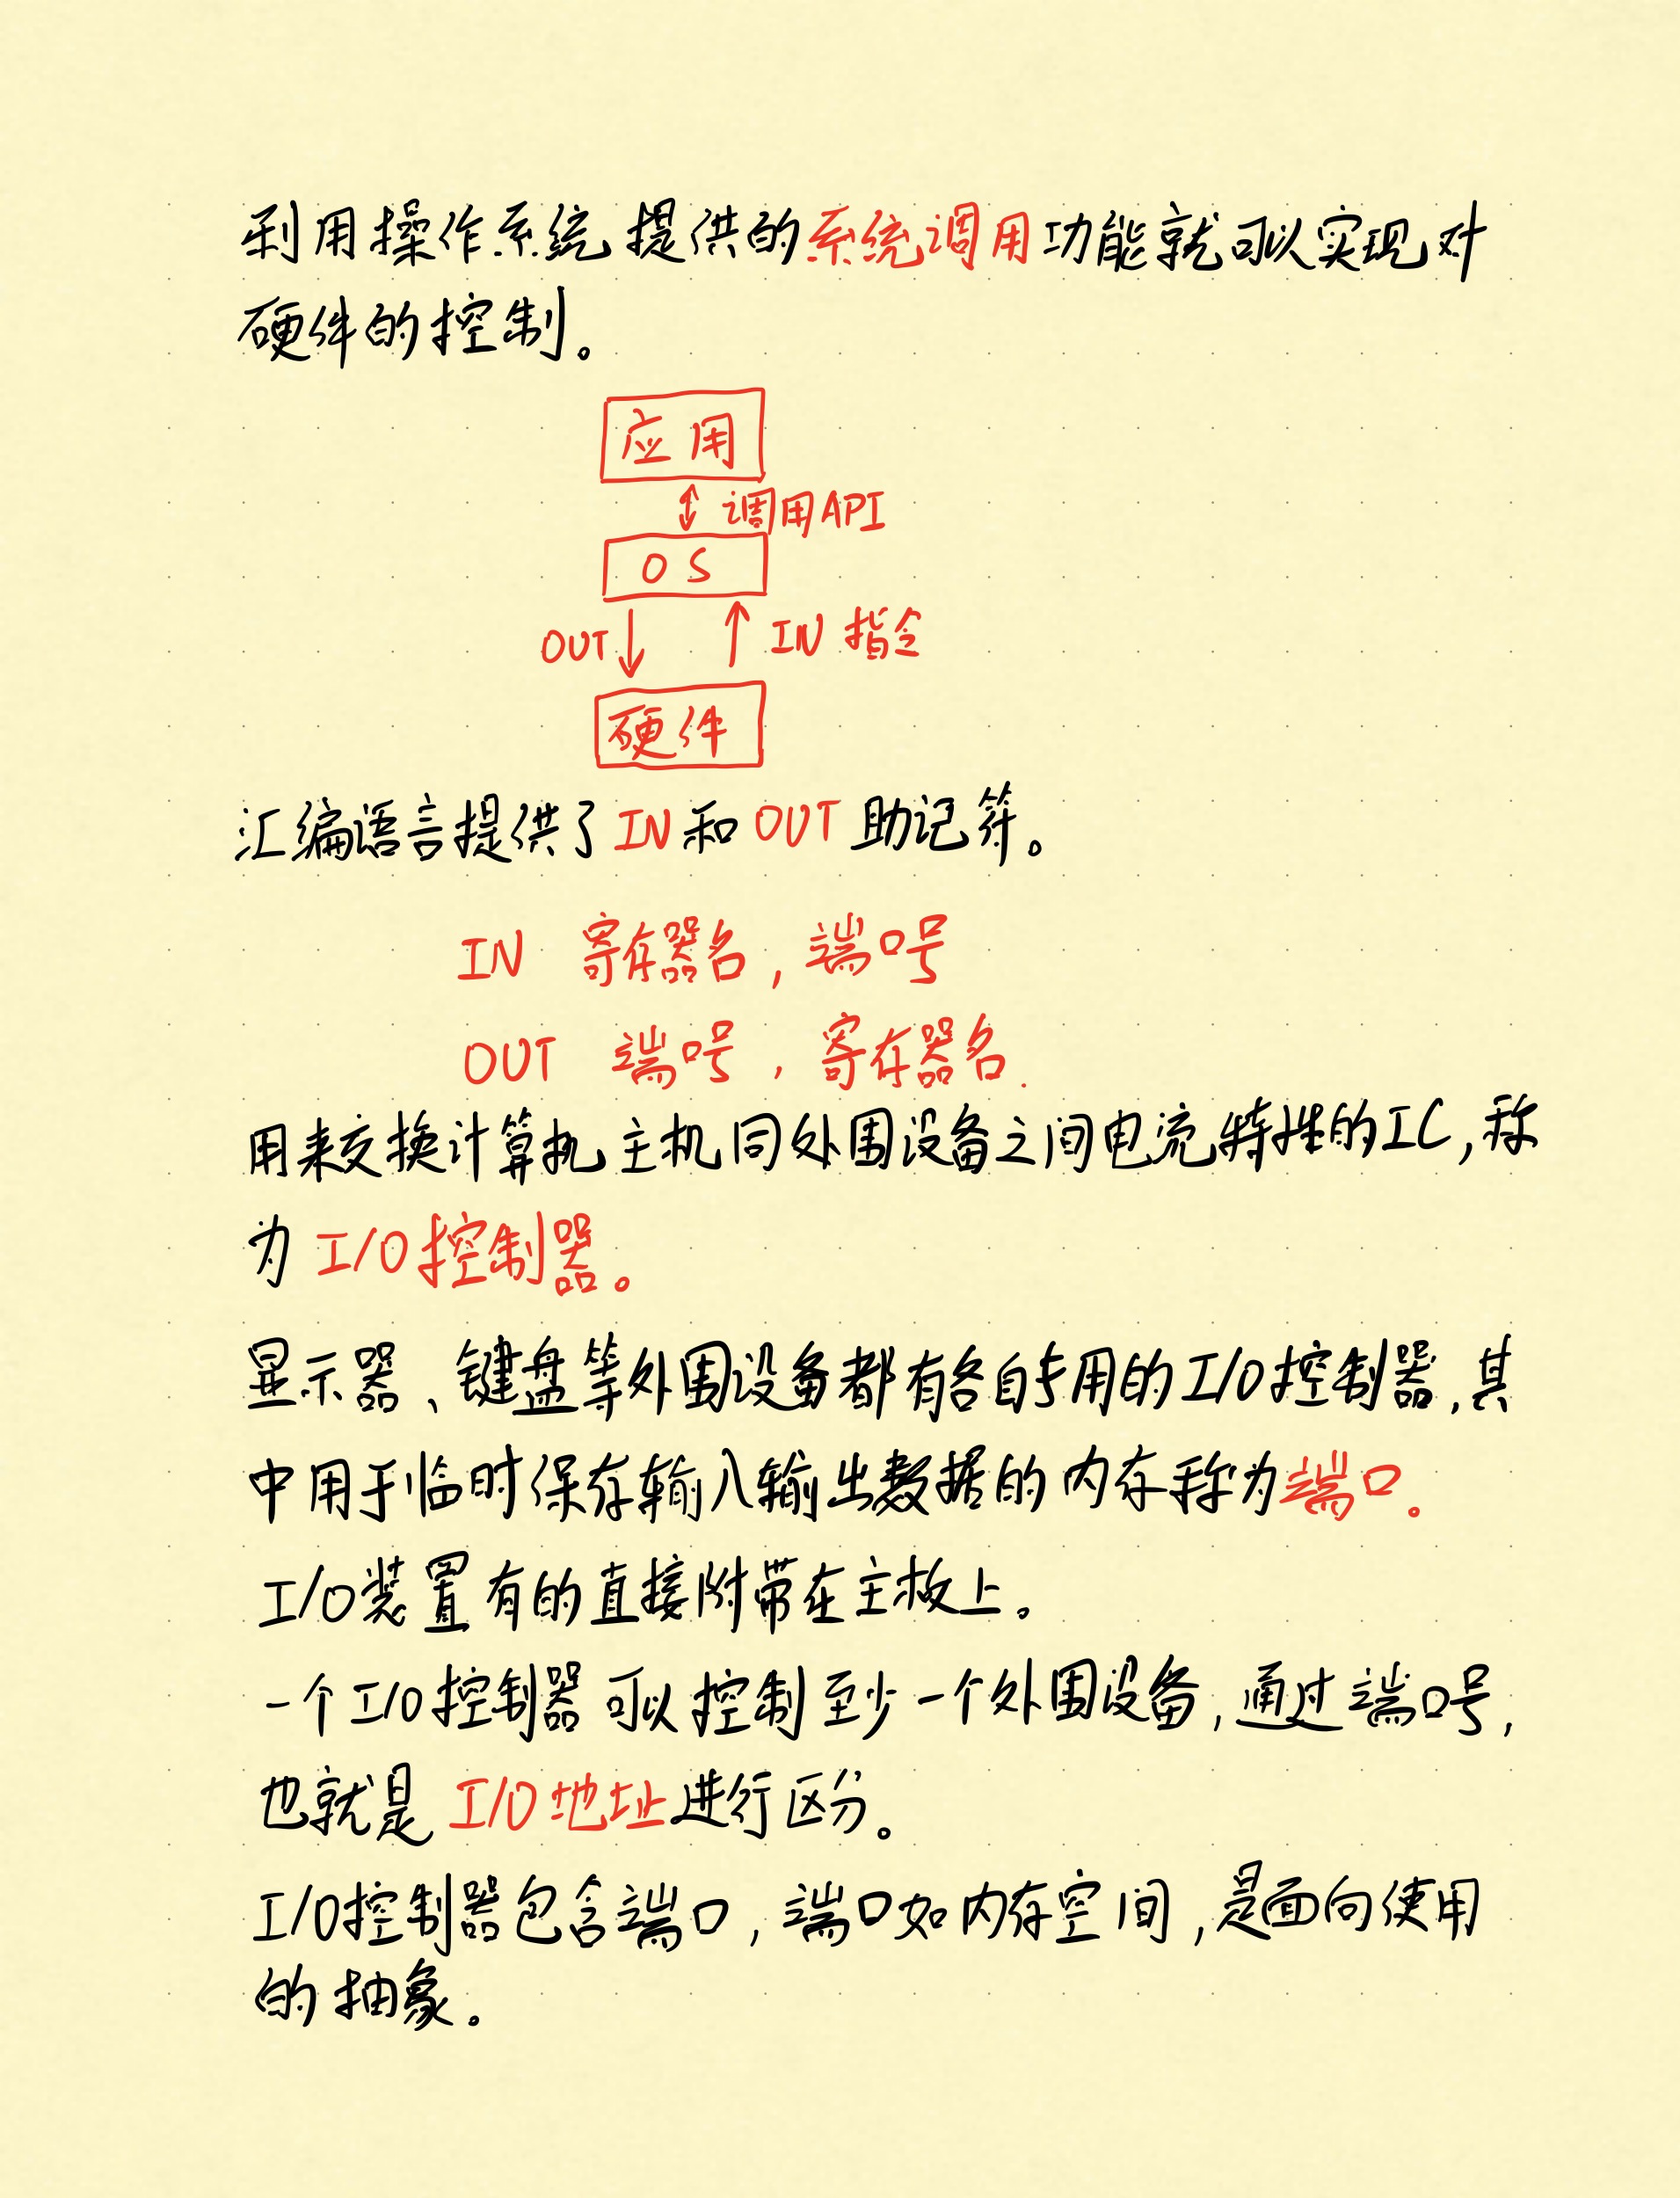 利用操作系统提供的系统调用功能就可以实现对
硬件的控制。
应用
调用API
OS
OUT
IN 指令
硬件
汇编语言提供了IN和OUT助记符。
IN 寄存器名,端口号
OUT 端口号,寄存器名.
用来交换计算机主机同外围设备之间电流特性的IC,称
为I/O控制器。
显示器、键盘等外围设备都有各自专用的I/O控制器,其
中用于临时保存输入输出数据的内存称为端口。
I/O装置有的直接附带在主板上。
一个I/O控制器可以控制至少一个外围设备,通过端口号,
也就是I/O地址进行区分。
I/O控制器包含端口,端口如内存空间,是面向使用
的抽象。